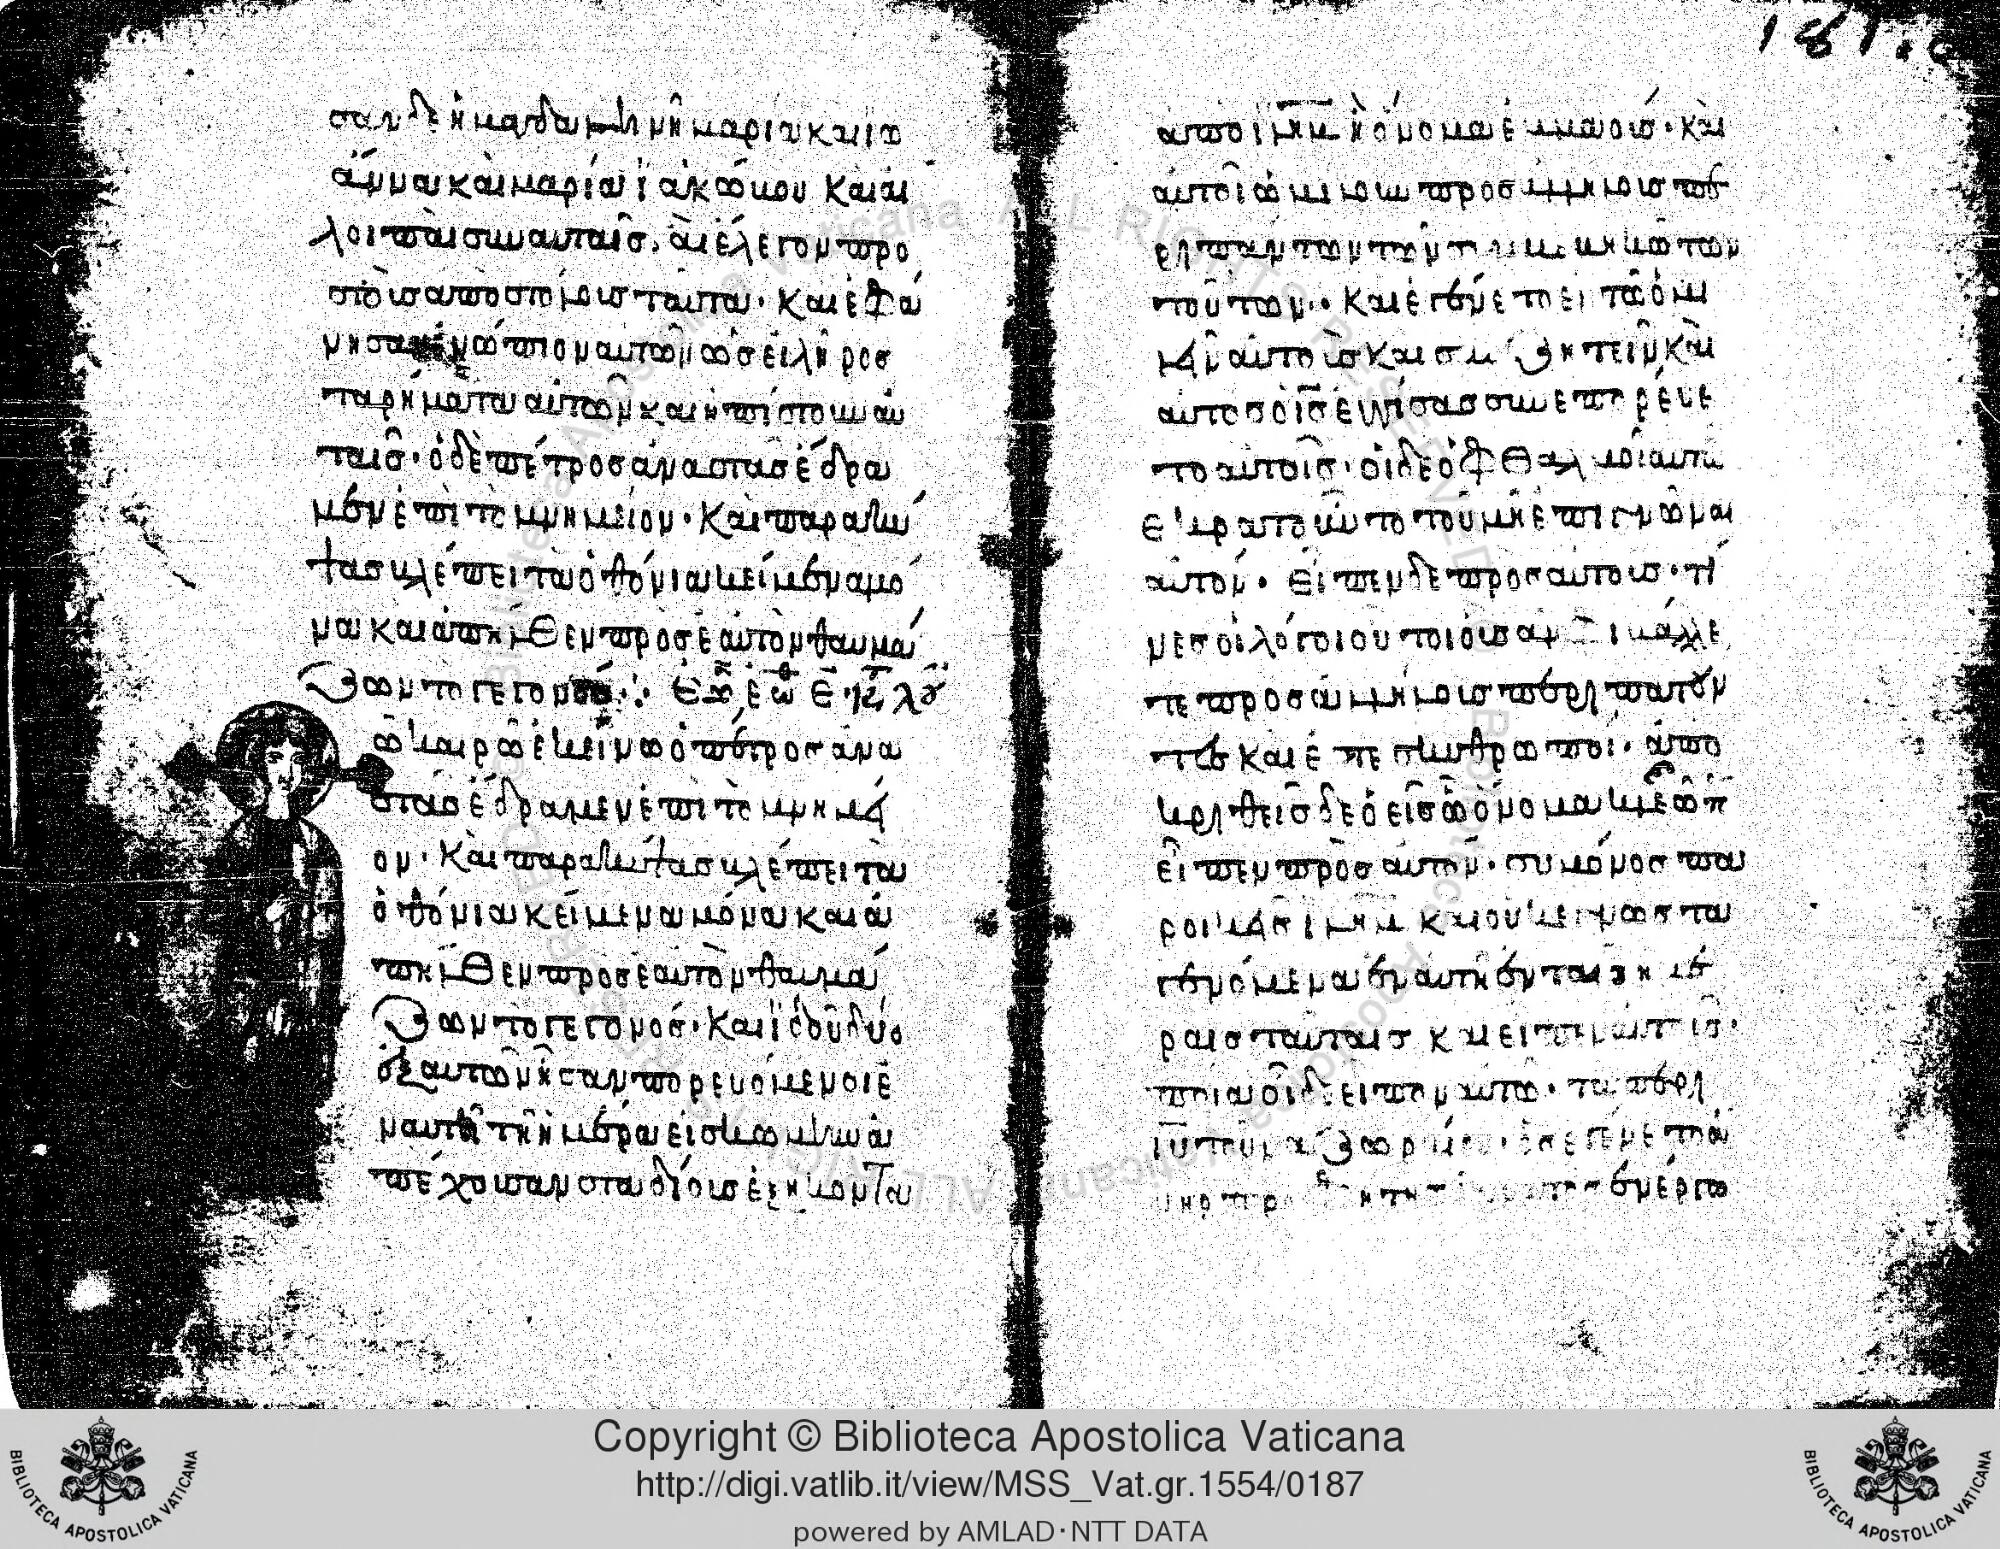 σαν δὲ ἡ μαγδαληνὴ μαρία καὶ ἰω
άννα καὶ μαρία ἰακώβου καὶ αἱ
λοιπαὶ σὺν αὐταῖς, αἳ ἔλεγον προ
στοὺς ἀποστόλους ταῦτα· καὶ ἐφά
νησαν ἐνώπιον αὐτῶν ὡσεὶ λῆρος
τα ρήματα αὐτῶν καὶ ηπίστουν αὐ
ταῖς· ὁ δὲ πέτρος ἀναστὰς ἔδρα
μεν ἐπὶ τὸ μνημεῖον· καὶ παρακύ
ψας βλέπει τὰ ὀθόνια κείμενα μό
να καὶ ἀπῆλθεν πρὸς ἑαυτὸν θαυμά
ζων το γεγονός
καιρῶ ἐκείνω ὁ πέτρος ἀνα
στὰς ἔδραμεν ἐπὶ τὸ μνημεῖ
ον· καὶ παρακύψας βλέπει τὰ
ὀθόνια κείμενα μόνα καὶ ἀ
πῆλθεν πρὸς ἑαυτὸν θαυμά
ζων τὸ γεγονός· καὶ ἰδοὺ δύο
ἐξ αὐτῶν ἦσαν πορευόμενοι ἐ
ν αυτῆ τῆ ἡμέρα εἰς κώμην ἀ
πέχουσαν σταδίους ἑξήκοντα
181
ἀπὸ ἰλημ ἧ ὄνομα ἐμμαούς· καὶ
αὐτοὶ ὡμίλουν προς ἀλλήλους πε
ρὶ πάντων τῶν συμβεβηκότων
τούτων· καὶ ἐγένετο ἐν τῶ ὁμι
λεῖν αὐτοὺς καὶ συζητεῖν καὶ
αὐτὸς ὁ ις ἐγγίσας συνεπορεύε
το αὐτοῖς· οἱ δὲ ὀφθαλμοὶ αὐτῶν
ἐκρατοῦντο τοῦ μὴ ἐπιγνῶναι
αὐτόν· εἶπεν δὲ προς αὐτούς· τί
νες οἱ λόγοι οὗτοι οὓς ἀντιβάλλε
τε προς ἀλλήλους περιπατοῦν
τες και ἐστε σκυθρωποί· ἀπο
κριθεὶς δὲ ὁ εἷς ὧ ὄνομα κλεώπ
εἶπεν πρὸς αὐτόν· συ μόνος πα
ροικεῖς ιλημ και οὐκ ἔγνως τα
γενόμενα ἐν αὐτῆ ἐν ταῖς ἡμέ
ραις ταύταις και εἶπεν αὐτοῖς·
ποῖα οἱ δὲ εἶπον αὐτῶ· τα περὶ
ιυ τοῦ ναζωραίου· ὃς ἐγένετο ἀ
νηρ προφήτης δυνατὸς ἐν ἔργω
Copyright © Biblioteca Apostolica Vaticana
http://digi.vatlib.it/view/MSS_Vat.gr.1554/0187
powered by AMLAD·NTT DATA
BIBLIOTECA APOSTOLICA VATICANA
BIBLIOTECA APOSTOLICA VATICANA